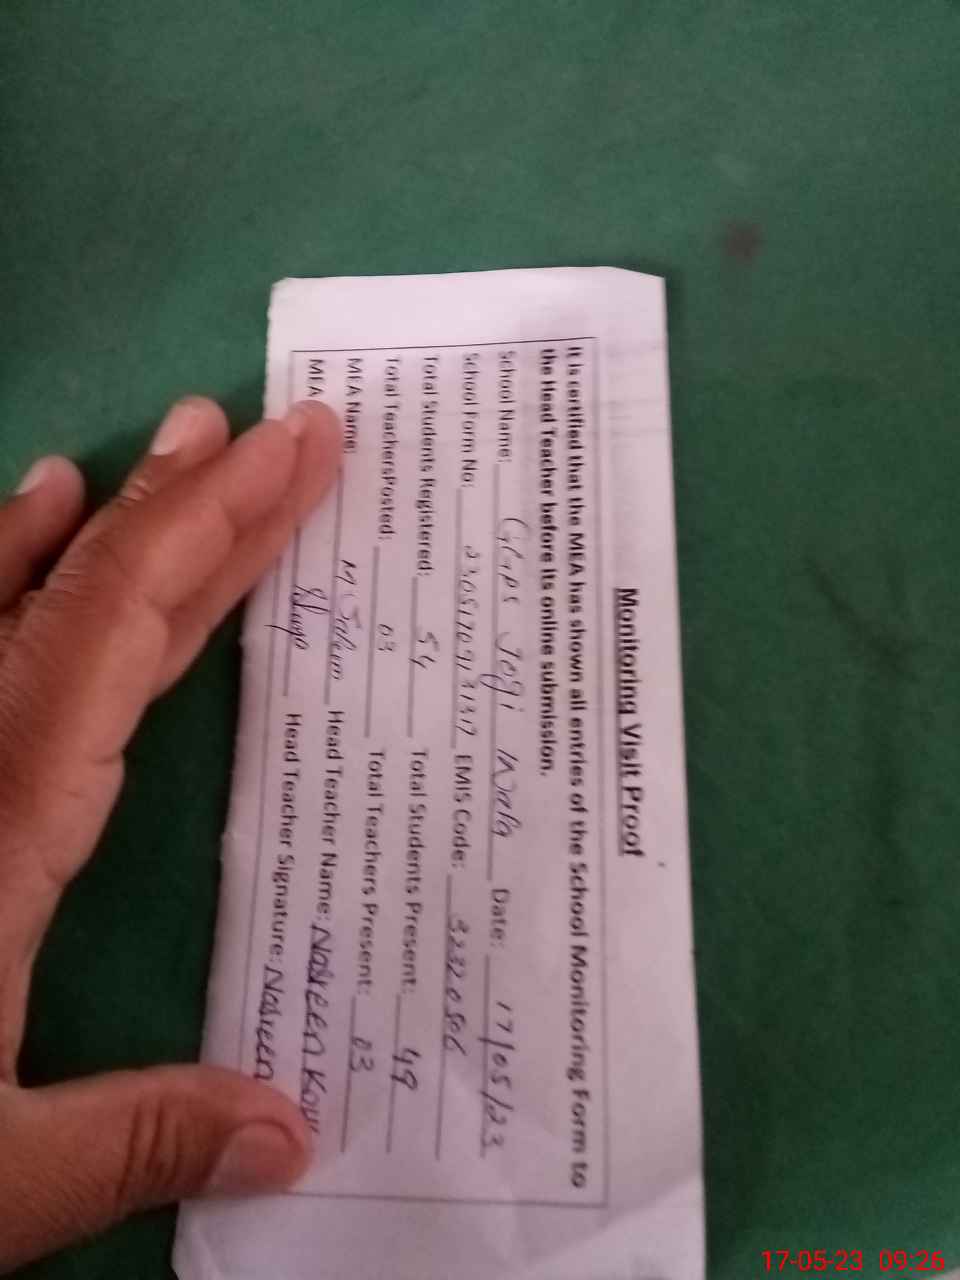 Monitoring Visit Proof
It is certified that the MEA has shown all entries of the School Monitoring Form to
the Head Teacher before its online submission.
School Name: GGPS Jogi Wala Date: 17/05/23
School Form No: 23051709131317 EMIS Code: 32320506
Total Students Registered: 54 Total Students Present: 49
Total TeachersPosted: 03 Total Teachers Present: 03
MEA Name: M Salim Head Teacher Name: Nasreen
MEA Head Teacher Signature: Nasreen
17-05-23 09:26